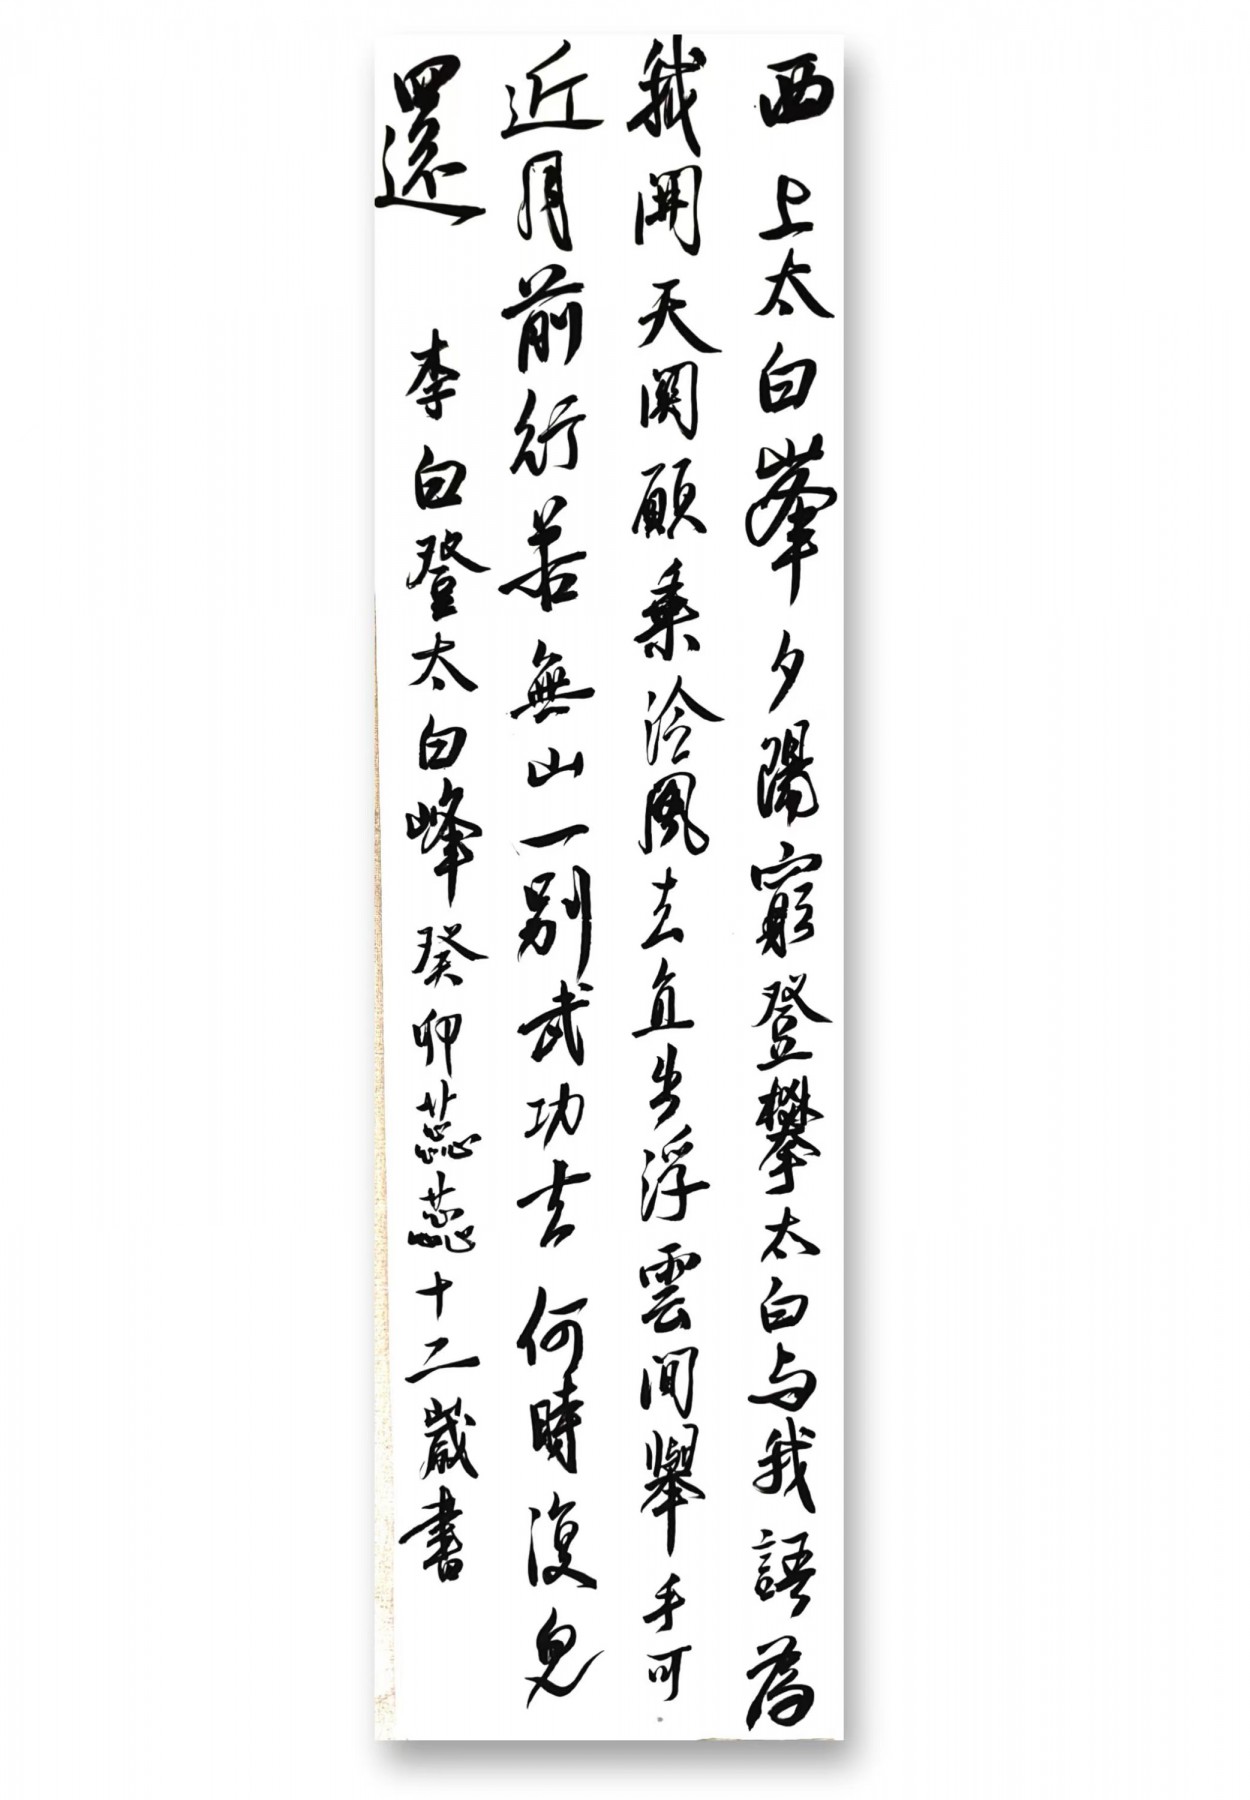 西上太白峯夕陽窮登攀太白与我語為
我開天関願乗泠風去直出浮雲間舉手可
近月前行若無山一别武功去何時復見
還 李白登太白峰癸卯蕊蕊十二歲書